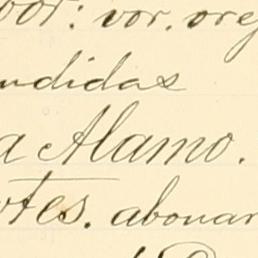 por: vor. orej
undidas
a Alamo.
rtes. abonar